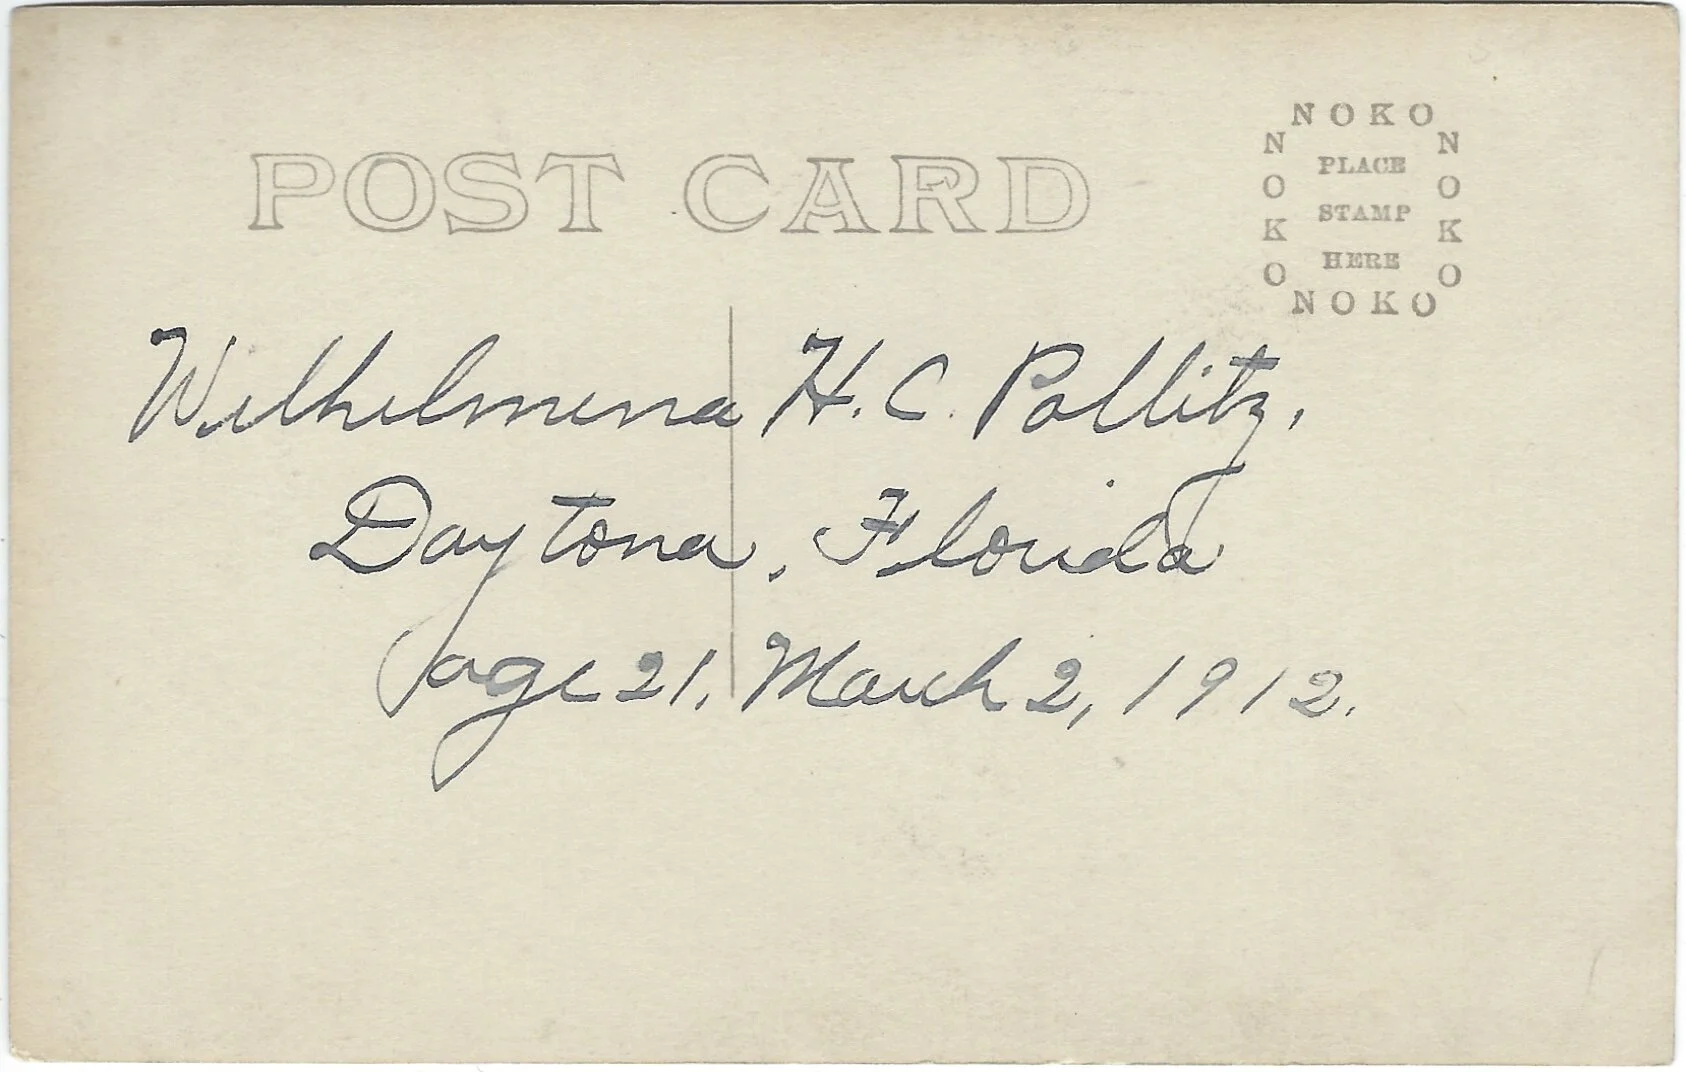 POST CARD
NOKO
NOKO
PLACE
STAMP
HERE
NOKO
NOKO
Wilhelmena H. C. Pollitz,
Daytona, Florida
age 21, March 2, 1912.